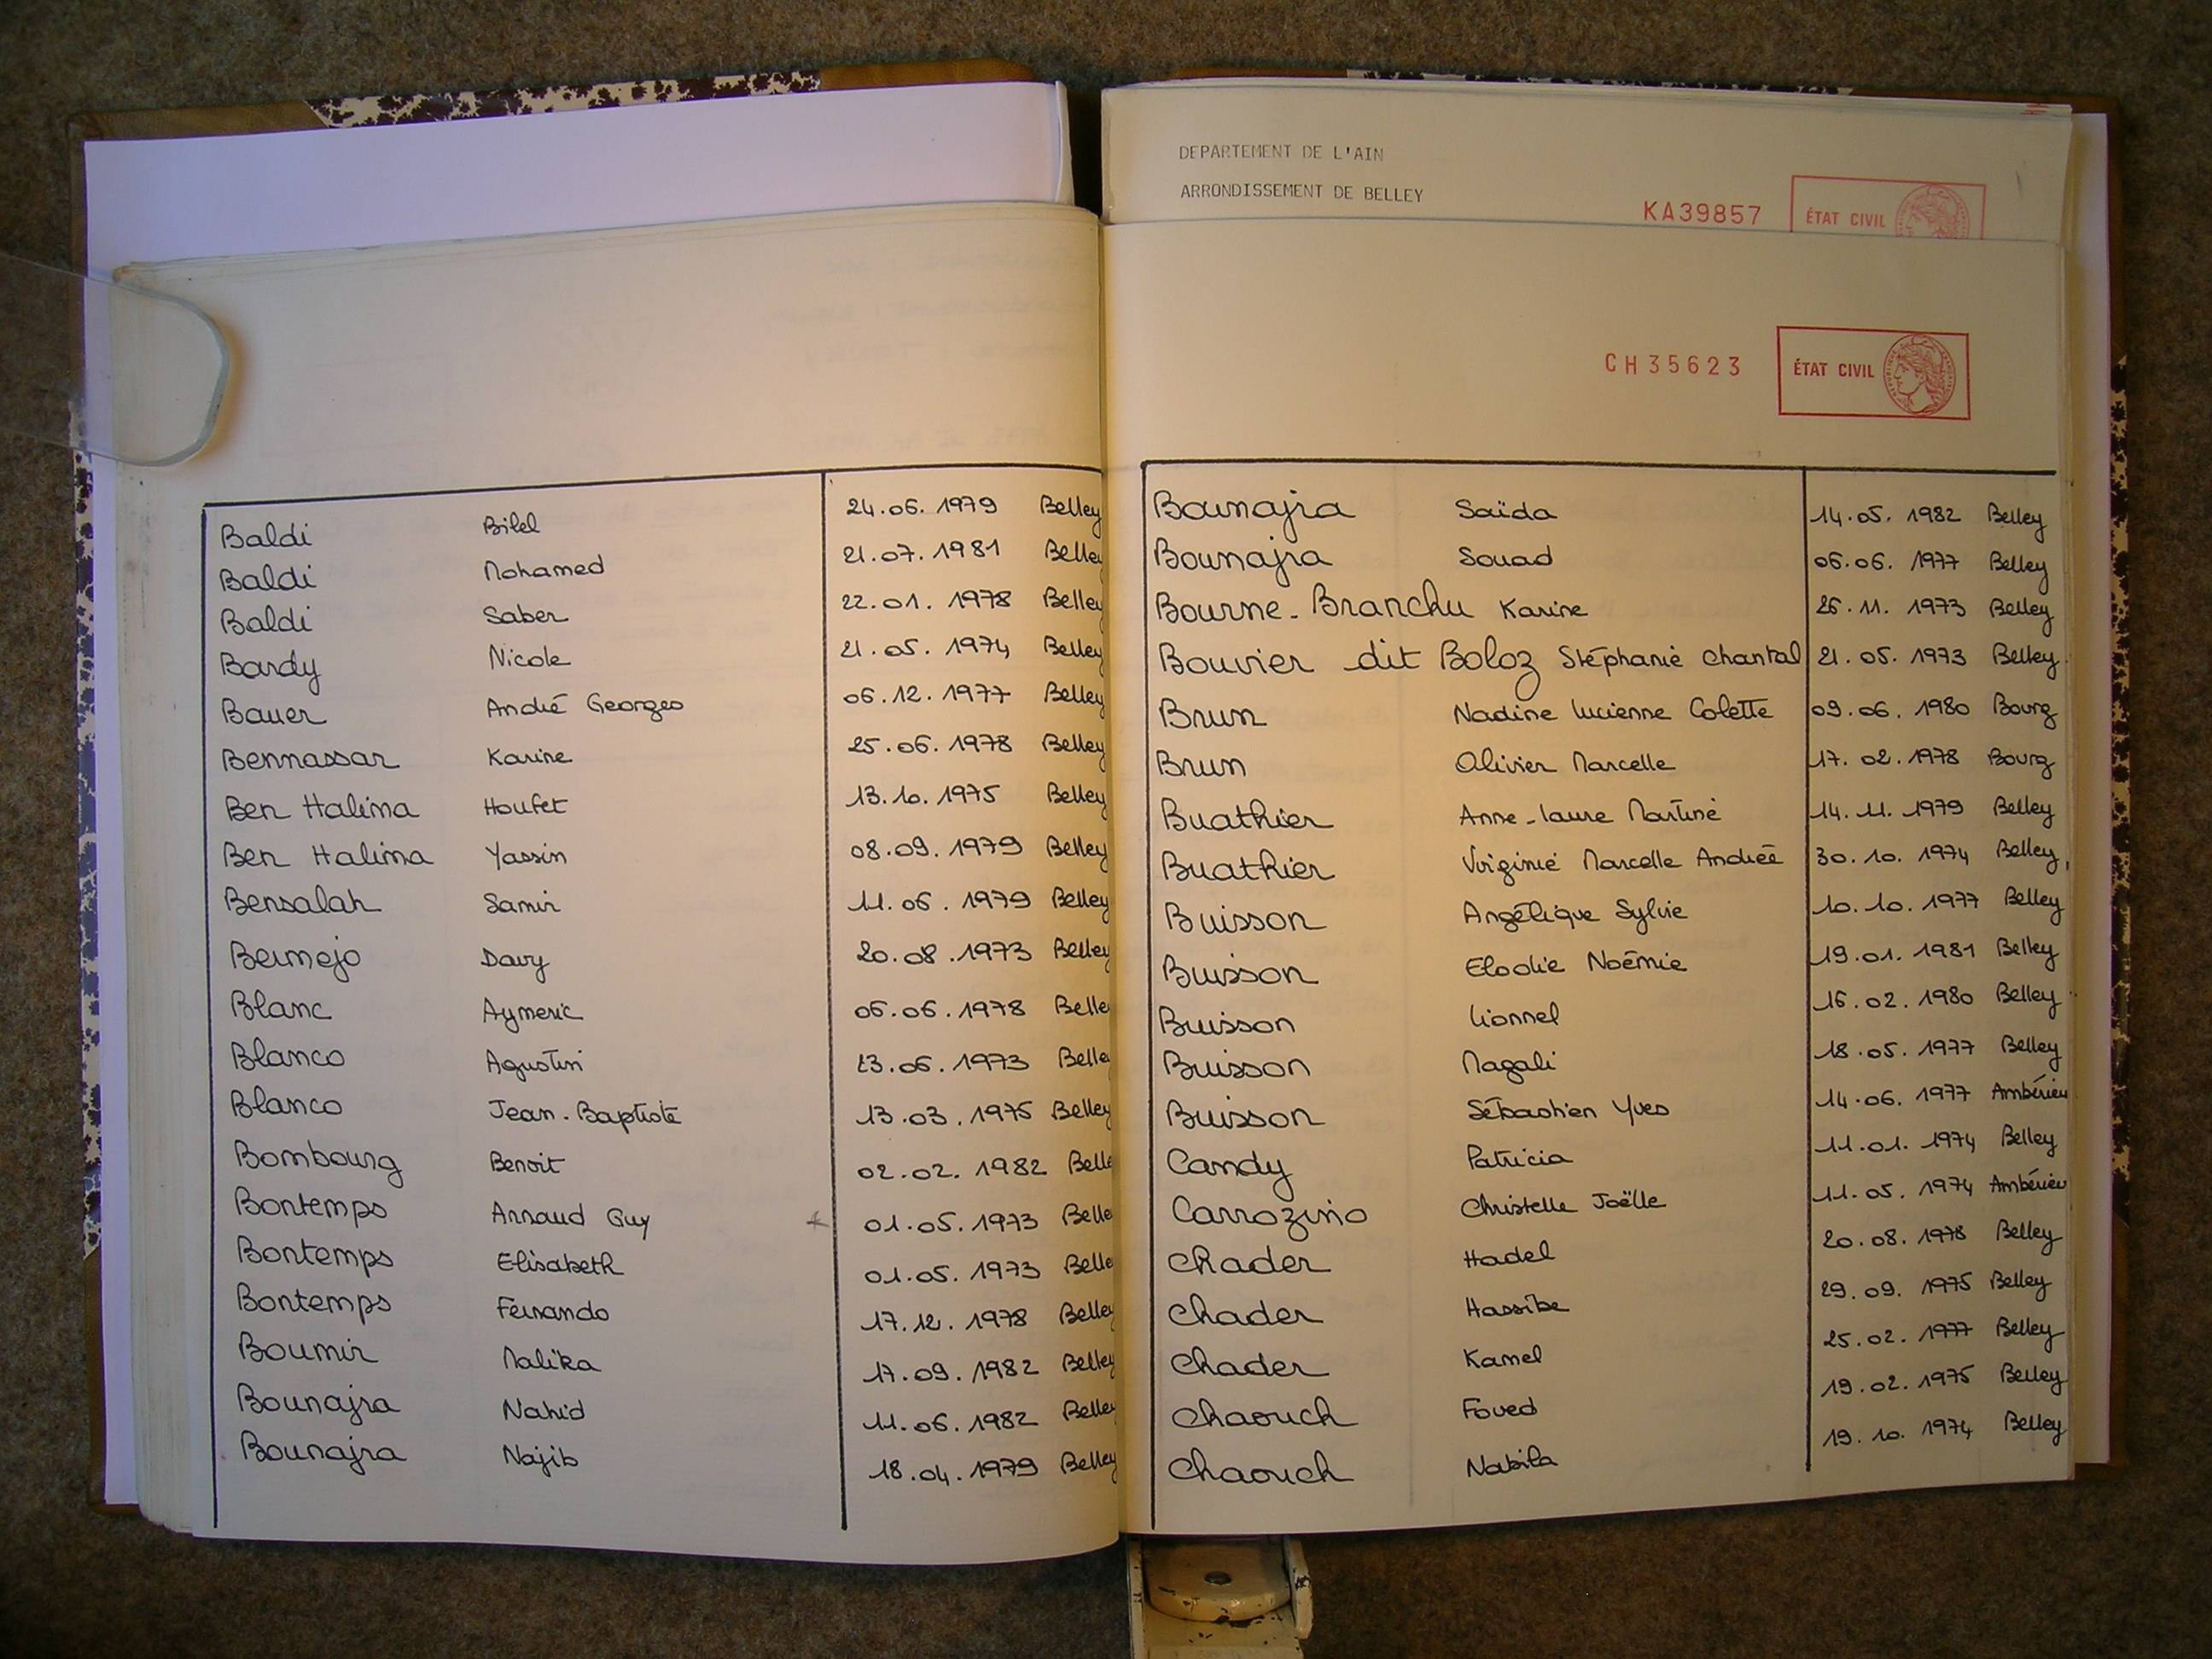 Baldi Bilel 24.06.1979 Belley
Baldi Mohamed 21.07.1981 Belley
Baldi Saber 22.01.1978 Belley
Bardy Nicole 21.05.1974 Belley
Bauer André Georges 06.12.1977 Belley
Bennassar Karine 25.06.1978 Belley
Ben Halima Houfet 13.10.1975 Belley
Ben Halima Yassin 08.09.1979 Belley
Bensalah Samir 11.06.1979 Belley
Bermejo Davy 20.08.1973 Belley
Blanc Aymeric 06.06.1978 Belle
Blanco Agustin 23.06.1973 Belle
Blanco Jean-Baptiste 13.03.1975 Belley
Bombourg Benoit 02.02.1982 Belle
Bontemps Arnaud Guy 01.05.1973 Belle
Bontemps Elisabeth 01.05.1973 Belle
Bontemps Fernando 17.12.1978 Belley
Boumir Malika 17.09.1982 Belley
Bounajra Nahid 11.06.1982 Belley
Bounajra Najib 18.04.1979 Belley
DEPARTEMENT DE L'AIN
ARRONDISSEMENT DE BELLEY
KA39857 ÉTAT CIVIL
CH35623 ÉTAT CIVIL
Bounajra Saïda 14.05.1982 Belley
Bounajra Souad 06.06.1977 Belley
Bourne-Branchu Karine 26.11.1973 Belley
Bouvier dit Boloz Stéphanie Chantal 21.05.1973 Belley
Brun Nadine Lucienne Colette 09.06.1980 Bourg
Brun Olivier Marcelle 17.02.1978 Bourg
Buathier Anne-Laure Martine 14.11.1979 Belley
Buathier Virginie Marcelle Andrée 30.10.1974 Belley
Buisson Angélique Sylvie 10.10.1977 Belley
Buisson Elodie Noémie 19.01.1981 Belley
Buisson Lionnel 16.02.1980 Belley
Buisson Magali 18.05.1977 Belley
Buisson Sébastien Yves 14.06.1977 Ambérieu
Candy Patricia 11.01.1974 Belley
Carrozino Christelle Joëlle 11.05.1974 Ambérieu
Chader Hadel 20.08.1978 Belley
Chader Hassibe 29.09.1975 Belley
Chader Kamel 25.02.1977 Belley
Chaouch Foued 19.02.1975 Belley
Chaouch Nabila 19.10.1974 Belley